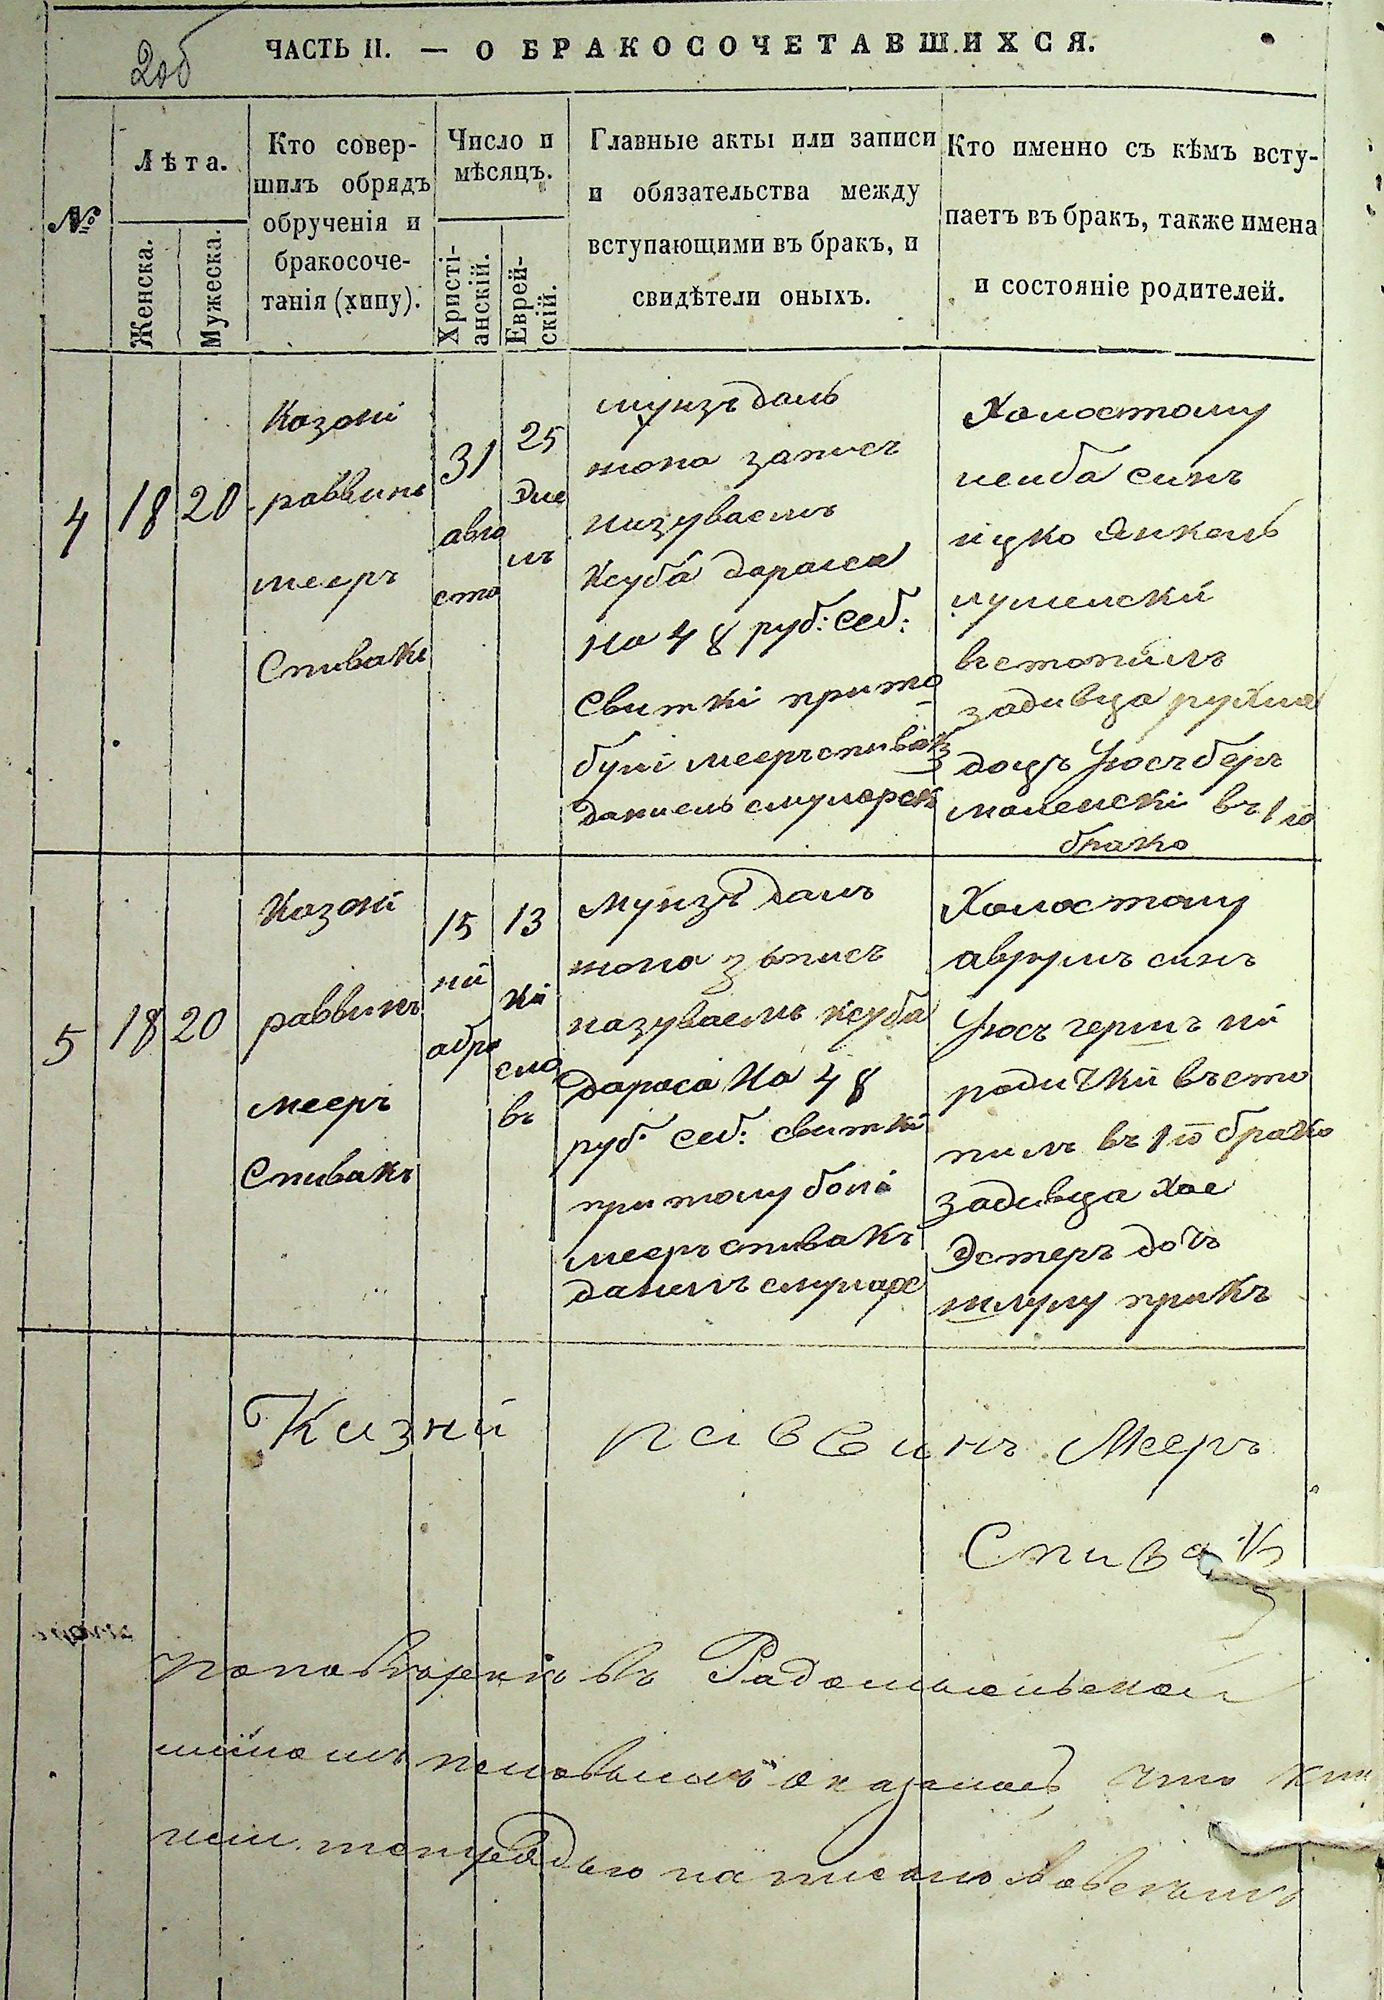 2об
ЧАСТЬ II. — О БРАКОСОЧЕТАВШИХСЯ.
№
Лѣта.
Женска.
Мужеска.
Кто совер-
шилъ обрядъ
обрученія и
бракосоче-
танія (хипу).
Число и
мѣсяцъ.
Христі-
анскій.
Еврей-
скій.
Главные акты или записи
и обязательства между
вступающими въ бракъ, и
свидѣтели оныхъ.
Кто именно съ кѣмъ всту-
паетъ въ бракъ, также имена
и состояніе родителей.
4
18
20
Казоні
раввинъ
мееръ
Спивакъ
31
авгу
ста
25
Эле
лъ
мунзъ даль
жона записъ
назуваемъ
Ксуба дараса
на 48 руб: себ:
Свиткі при то
булі мееръ спивакъ
даниель смулярск
Холостому
лейба синъ
ицко Янкель
въстопилъ
задивца рухля
доцъ Уюсъ беръ
малемскі въ 1й
брако
5
18
20
Казоні
раввинъ
мееръ
Спивакъ
15
ной
абра
13
Ки
сла
въ
мунзъ далъ
жона запись
назуваемъ ксуба
дараса на 48
руб: себ: свиткі
при тому болі
мееръ спивакъ
данилъ смулярс
Холостому
аврумъ синъ
Уюсъ гершъ
радички въсто
пилъ въ 1й брако
задивца Хае
Эстеръ дочъ
шлумо прикъ
Кизній раввинъ Мееръ
Спивакъ
въ Радомысльской
оказалось что
написано